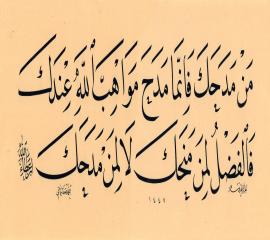 مَنْ مَدَحَكَ فَإِنَّمَا مَدَحَ مَوَاهِبَ اللَّهِ عِنْدَكَ
فَالْفَضْلُ لِمَنْ مَنَحَكَ لَا لِمَنْ مَدَحَكَ